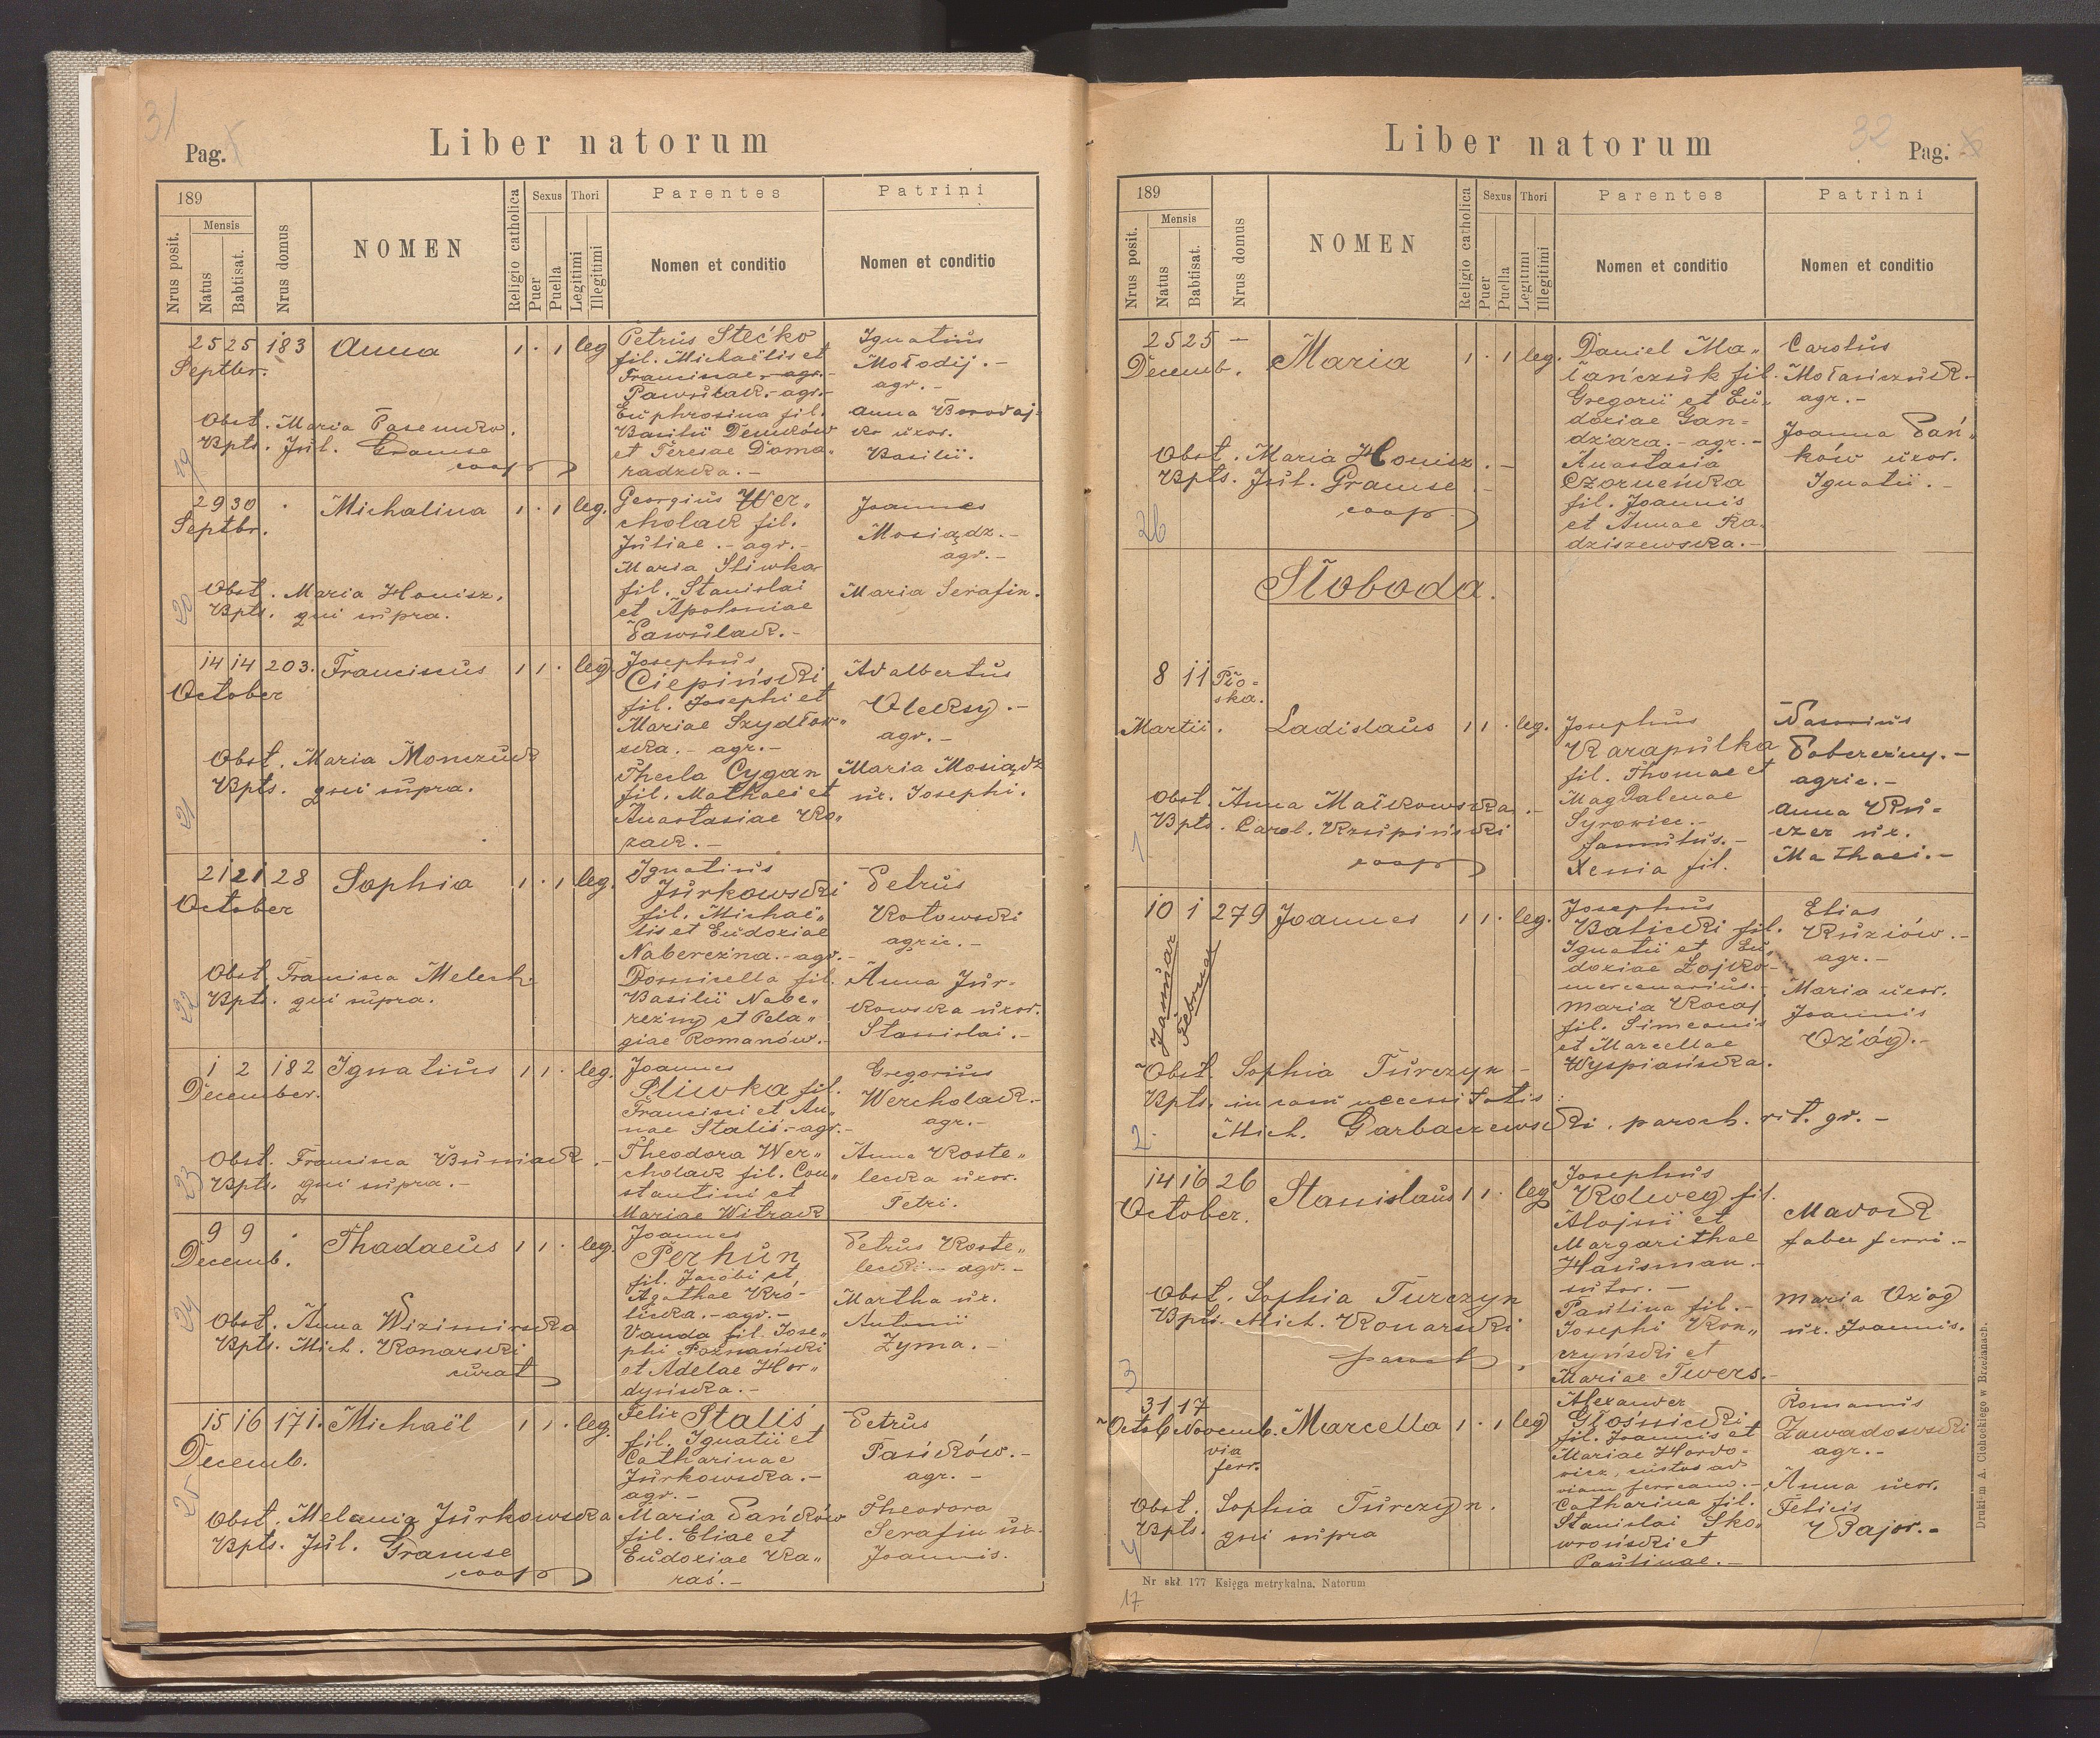 31
Pag.
Liber natorum
189
Nrus posit.
Mensis
Natus
Babtisat.
Nrus domus
NOMEN
Religio catholica
Sexus
Puer
Puella
Thori
Legitimi
Illegitimi
Parentes
Nomen et conditio
Patrini
Nomen et conditio
25 25 183 Anna 1 . 1 leg
Septbr.
Petrus Stećko
fil. Michaëlis et
Franciscae - agr. -
Pawsulak. - agr. -
Euphrosina fil.
Basilii Demków
et Teresae Doma-
radzka. -
Ignatius
Mołodij. -
agr. -
Anna
ko uxor.
Basilii.
Obst. Maria
Bpts. Jul. Gramse
coop
19
29 30 . Michalina 1 . 1 leg.
Septbr.
Georgius Wer„
cholak fil.
Juliae. - agr. -
Maria Sliwka
fil. Stanislai
et Apoloniae
Pawsulak. -
Joannes
Mosiądz. -
agr. -
Maria Serafin.
Obst. Maria Honisz.
Bpts. qui supra.
20
14 14 203. Franciscus 1 1 . leg.
October
Josephus
Ciepiński
fil. Josephi et
Mariae Szydłow„
ska. - agr. -
Thecla Cygan
fil. Mathaei et
Anastasiae Ko„
zak. -
Adalbertus
Oleksy. -
agr. -
Maria Mosiądz
ux. Josephi.
Obst. Maria Monczuk
Bpts. qui supra.
21
21 21 28 Sophia 1 . 1 leg.
October
Ignatius
Jurkowski
fil. Michaë„
lis et Eudoxiae
Nabereżna. - agr. -
Domicella fil.
Basilii Nabe„
reżny et Pela„
giae Romanów. -
Petrus
Kotowski
agric. -
Anna Jur-
kowska uxor.
Stanislai. -
Obst. Francisca Melech.
Bpts. qui supra.
22
1 2 182 Ignatius 1 1 . leg.
December.
Joannes
Sliwka fil.
Francisci et An„
nae Staliś. - agr. -
Theodora Wer„
cholak fil. Con„
stantini et
Mariae Witrak
Gregorius
Wercholak. -
agr. -
Anna Koste„
lecka uxor.
Petri.
Obst. Francisca Buniak. -
Bpts. qui supra. -
23
9 9 . Thadaeus 1 1 . leg.
Decemb.
Joannes
Perhun
fil. Jacobi et
Agathae Kró-
licka. - agr. -
Vanda fil. Jose„
phi Poznański
et Adelae Hor„
dyńska. -
Petrus Koste„
lecki. - agr. -
Martha ux.
Antonii
Zyma. -
Obst. Anna Wizimirska
Bpts. Mich. Konarski
curat
24
15 16 171. Michaël 1 1 . leg.
Decemb.
Felix Staliś
fil. Ignatii et
Catharinae
Jurkowska. -
agr. -
Maria Pańków
fil. Eliae et
Eudoxiae Ka„
raś. -
Petrus
Paśków. -
agr. -
Theodora
Serafin ux.
Joannis.
Obst. Melania Jurkowska
Bpts. Jul. Gramse
coop
25
Liber natorum
32
Pag.
189
Nrus posit.
Mensis
Natus
Babtisat.
Nrus domus
NOMEN
Religio catholica
Sexus
Puer
Puella
Thori
Legitimi
Illegitimi
Parentes
Nomen et conditio
Patrini
Nomen et conditio
25 25 - Maria 1 . 1 leg.
Decemb.
Daniel Ma„
łańczuk fil.
Gregorii et Eu-
doxiae Gan-
dziara. - agr. -
Anastasia
Czorneńka
fil. Joannis
et Annae Ra-
dziszewska. -
Carolus
Mołańczuk. -
agr. -
Joanna Pań„
ków uxor.
Ignatii. -
Obst. Maria Honisz. -
Bpts. Jul. Gramse. -
coop
26
Słoboda.
8 11
Martii. Ladislaus 1 1 . leg.
Josephus
Karapulka
fil. Thomae et
Magdalenae
Syrowiec. -
famulus. -
Xenia fil.
Pobereżny. -
agric. -
Anna Ku-
czer ux.
Mathaei. -
Obst. Anna Małkowska. -
Bpts. Carol. Krupiński
coop
1
10 1 279 Joannes 1 1 . leg.
Januar
Februar
Josephus
Balicki fil.
Ignatii et Eu-
doxiae Łojko-
mercenarius. -
Maria Kocaj
fil. Simeonis
et Marcellae
Wyspiańska.
Elias
Kuziów. -
agr. -
Maria uxor.
Joannis
Ożóg. -
Obst. Sophia Turczyn -
Bpts. in casu necessitatis
Mich. Garbaczewski. paroch. rit. gr. -
2.
14 16 26 Stanislaus 1 1 . leg
October.
Josephus
Kolweg fil.
Alojsii et
Margarithae
Hausman. -
sutor. -
Paulina fil. -
Josephi Kru„
czyński et
Mariae Twers. -
Mavok
faber ferri. -
Maria Ożóg
ux. Joannis.
Obst. Sophia Turczyn
Bpts. Mich. Konarski
paroch.
3
31 17
Octob Novemb. Marcella 1 . 1 leg
via
ferr.
Alexander
Głośnicki
fil. Joannis et
Mariae Horo-
wicz, custos ad
viam ferream. -
Catharina fil.
Stanislai Sko„
wroński et
Paulinae. -
Romanus
Zawadowski
agr. -
Anna uxor.
Felicis
Bajor. -
Obst. Sophia Turczyn.
Bpts. qui supra
4
Nr skł. 177 Księga metrykalna. Natorum
Drukiem A. Cichockiego w Brzeżanach.
17.